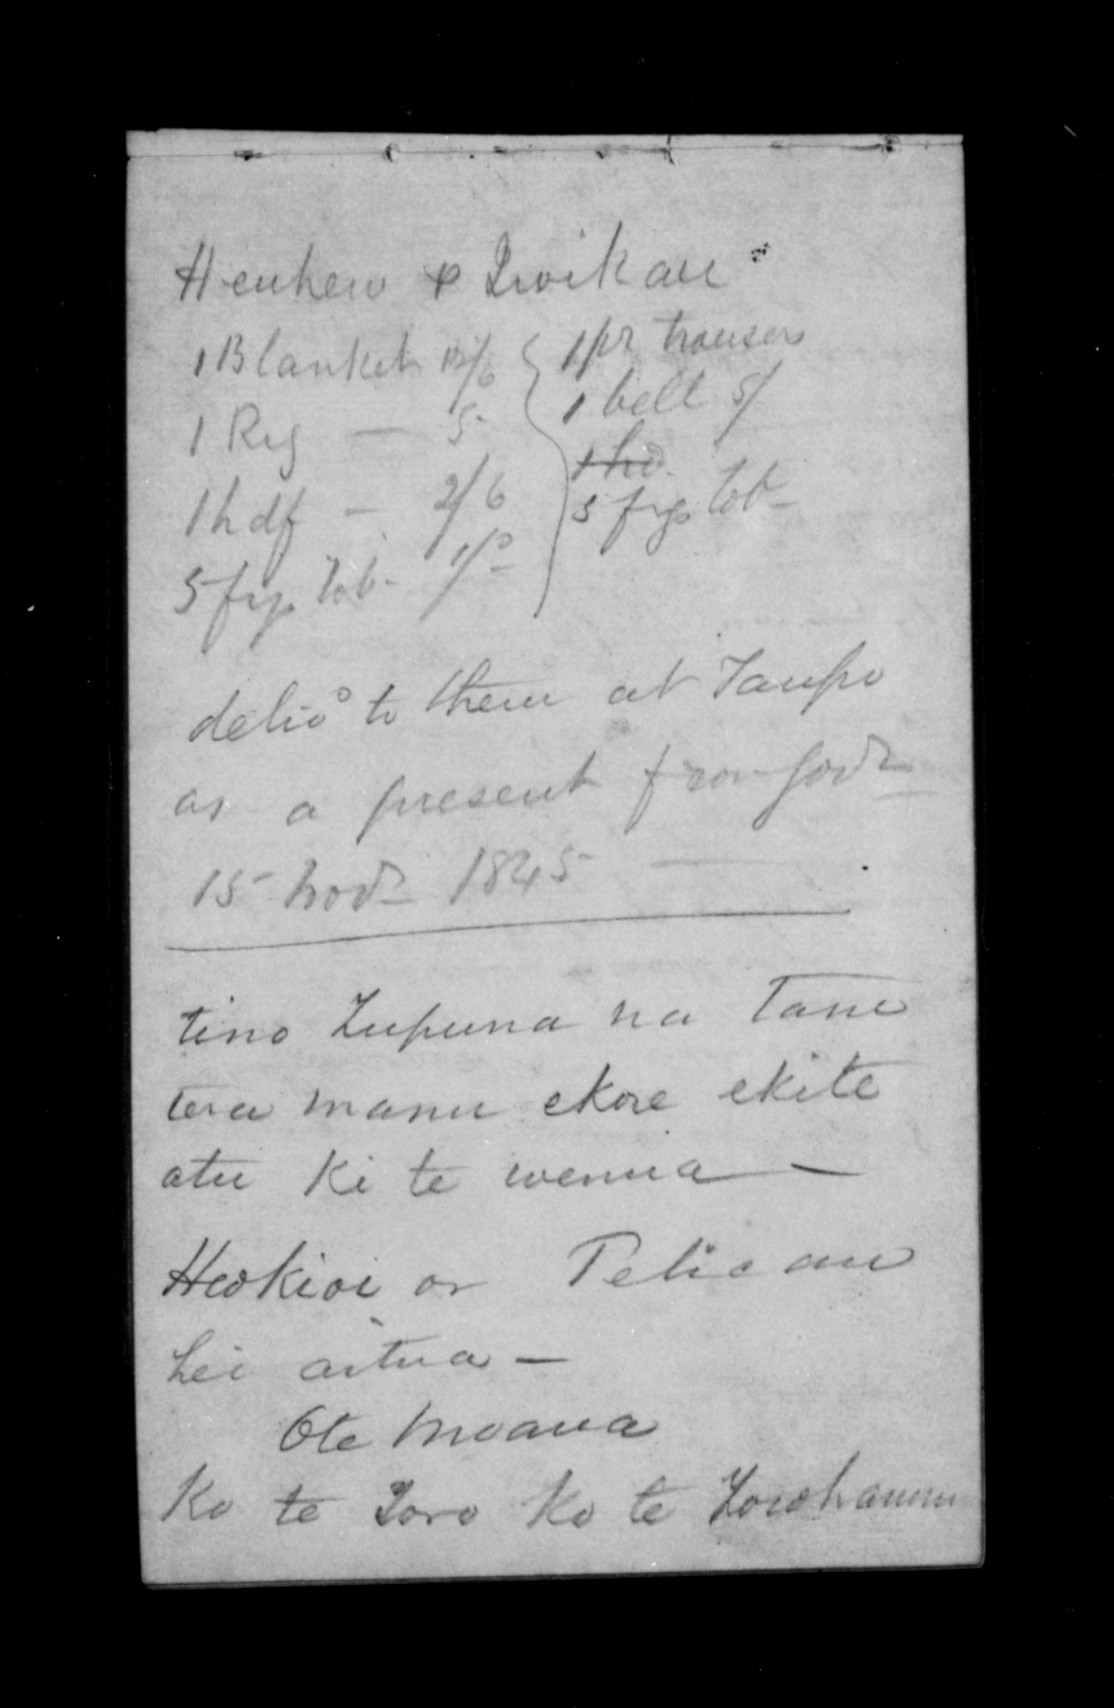 Heuheu & Iwikau
1 Blanket 12/6 1 pr trousers
1 Reg — 5- 1 belt 5/
1 hdf — 2/6
5 figs tob- 1/0 5 figs tob-
delivd to them at Taupo
as a present from Govr
15 Novr 1845 —
tino Tupuna na Tane
tera manu ekore ekite
atu ki te wenua —
Hokioi or Pelican
hei aitua —
Ote Moana
Ko te Toro ko te